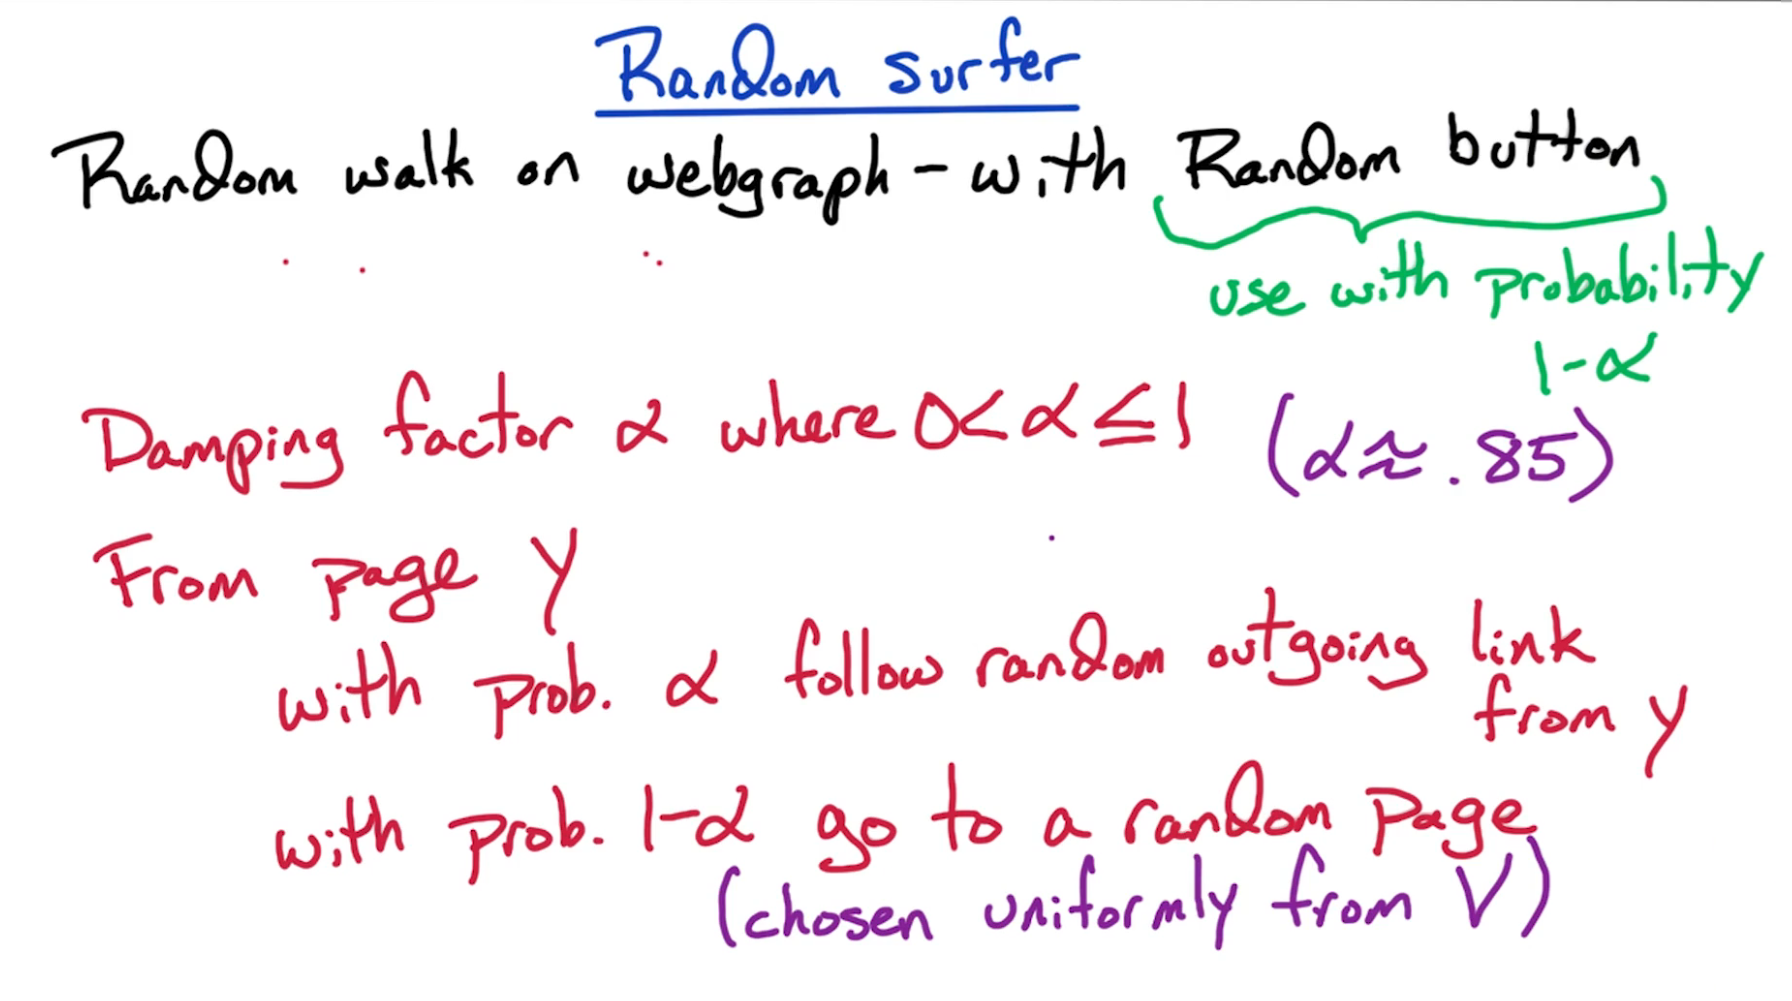 Random surfer
Random walk on webgraph - with Random button
use with probability
1-α
Damping factor α where 0<α≤1 (α≈.85)
From page y
with prob. α follow random outgoing link
from y
with prob. 1-α go to a random page
(chosen uniformly from V)